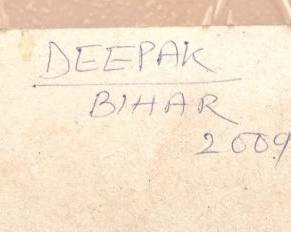 DEEPAK
BIHAR
2009